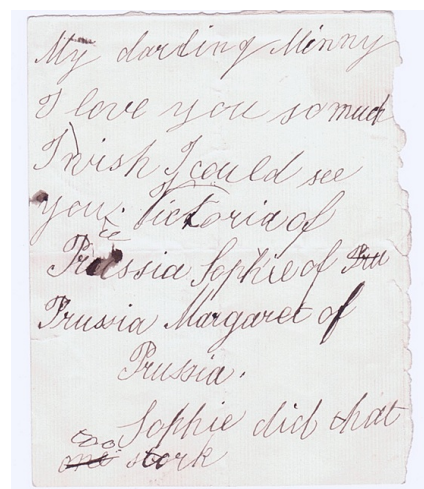 My darling Minny
I love you so much
I wish I could see
you. Victoria of
Prussia Sophie of Pru
Prussia Margaret of
Prussia.
Sophie did that
one stork